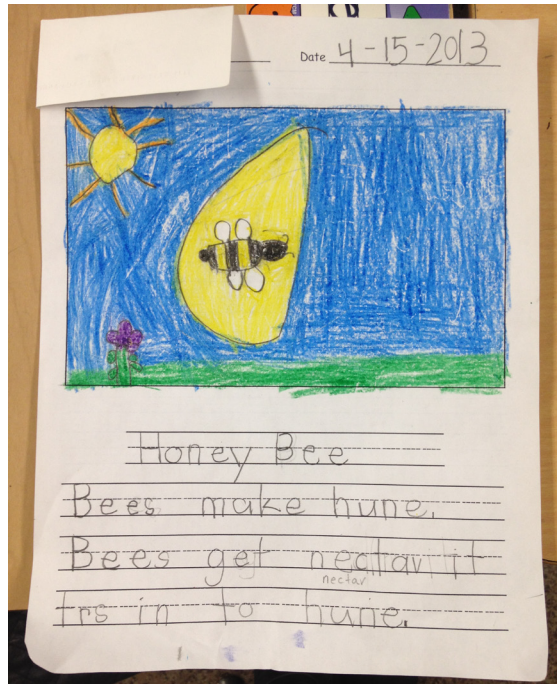 Date 4-15-2013
Honey Bee
Bees make hune.
Bees get nectar it
nectar
trs in to hune.